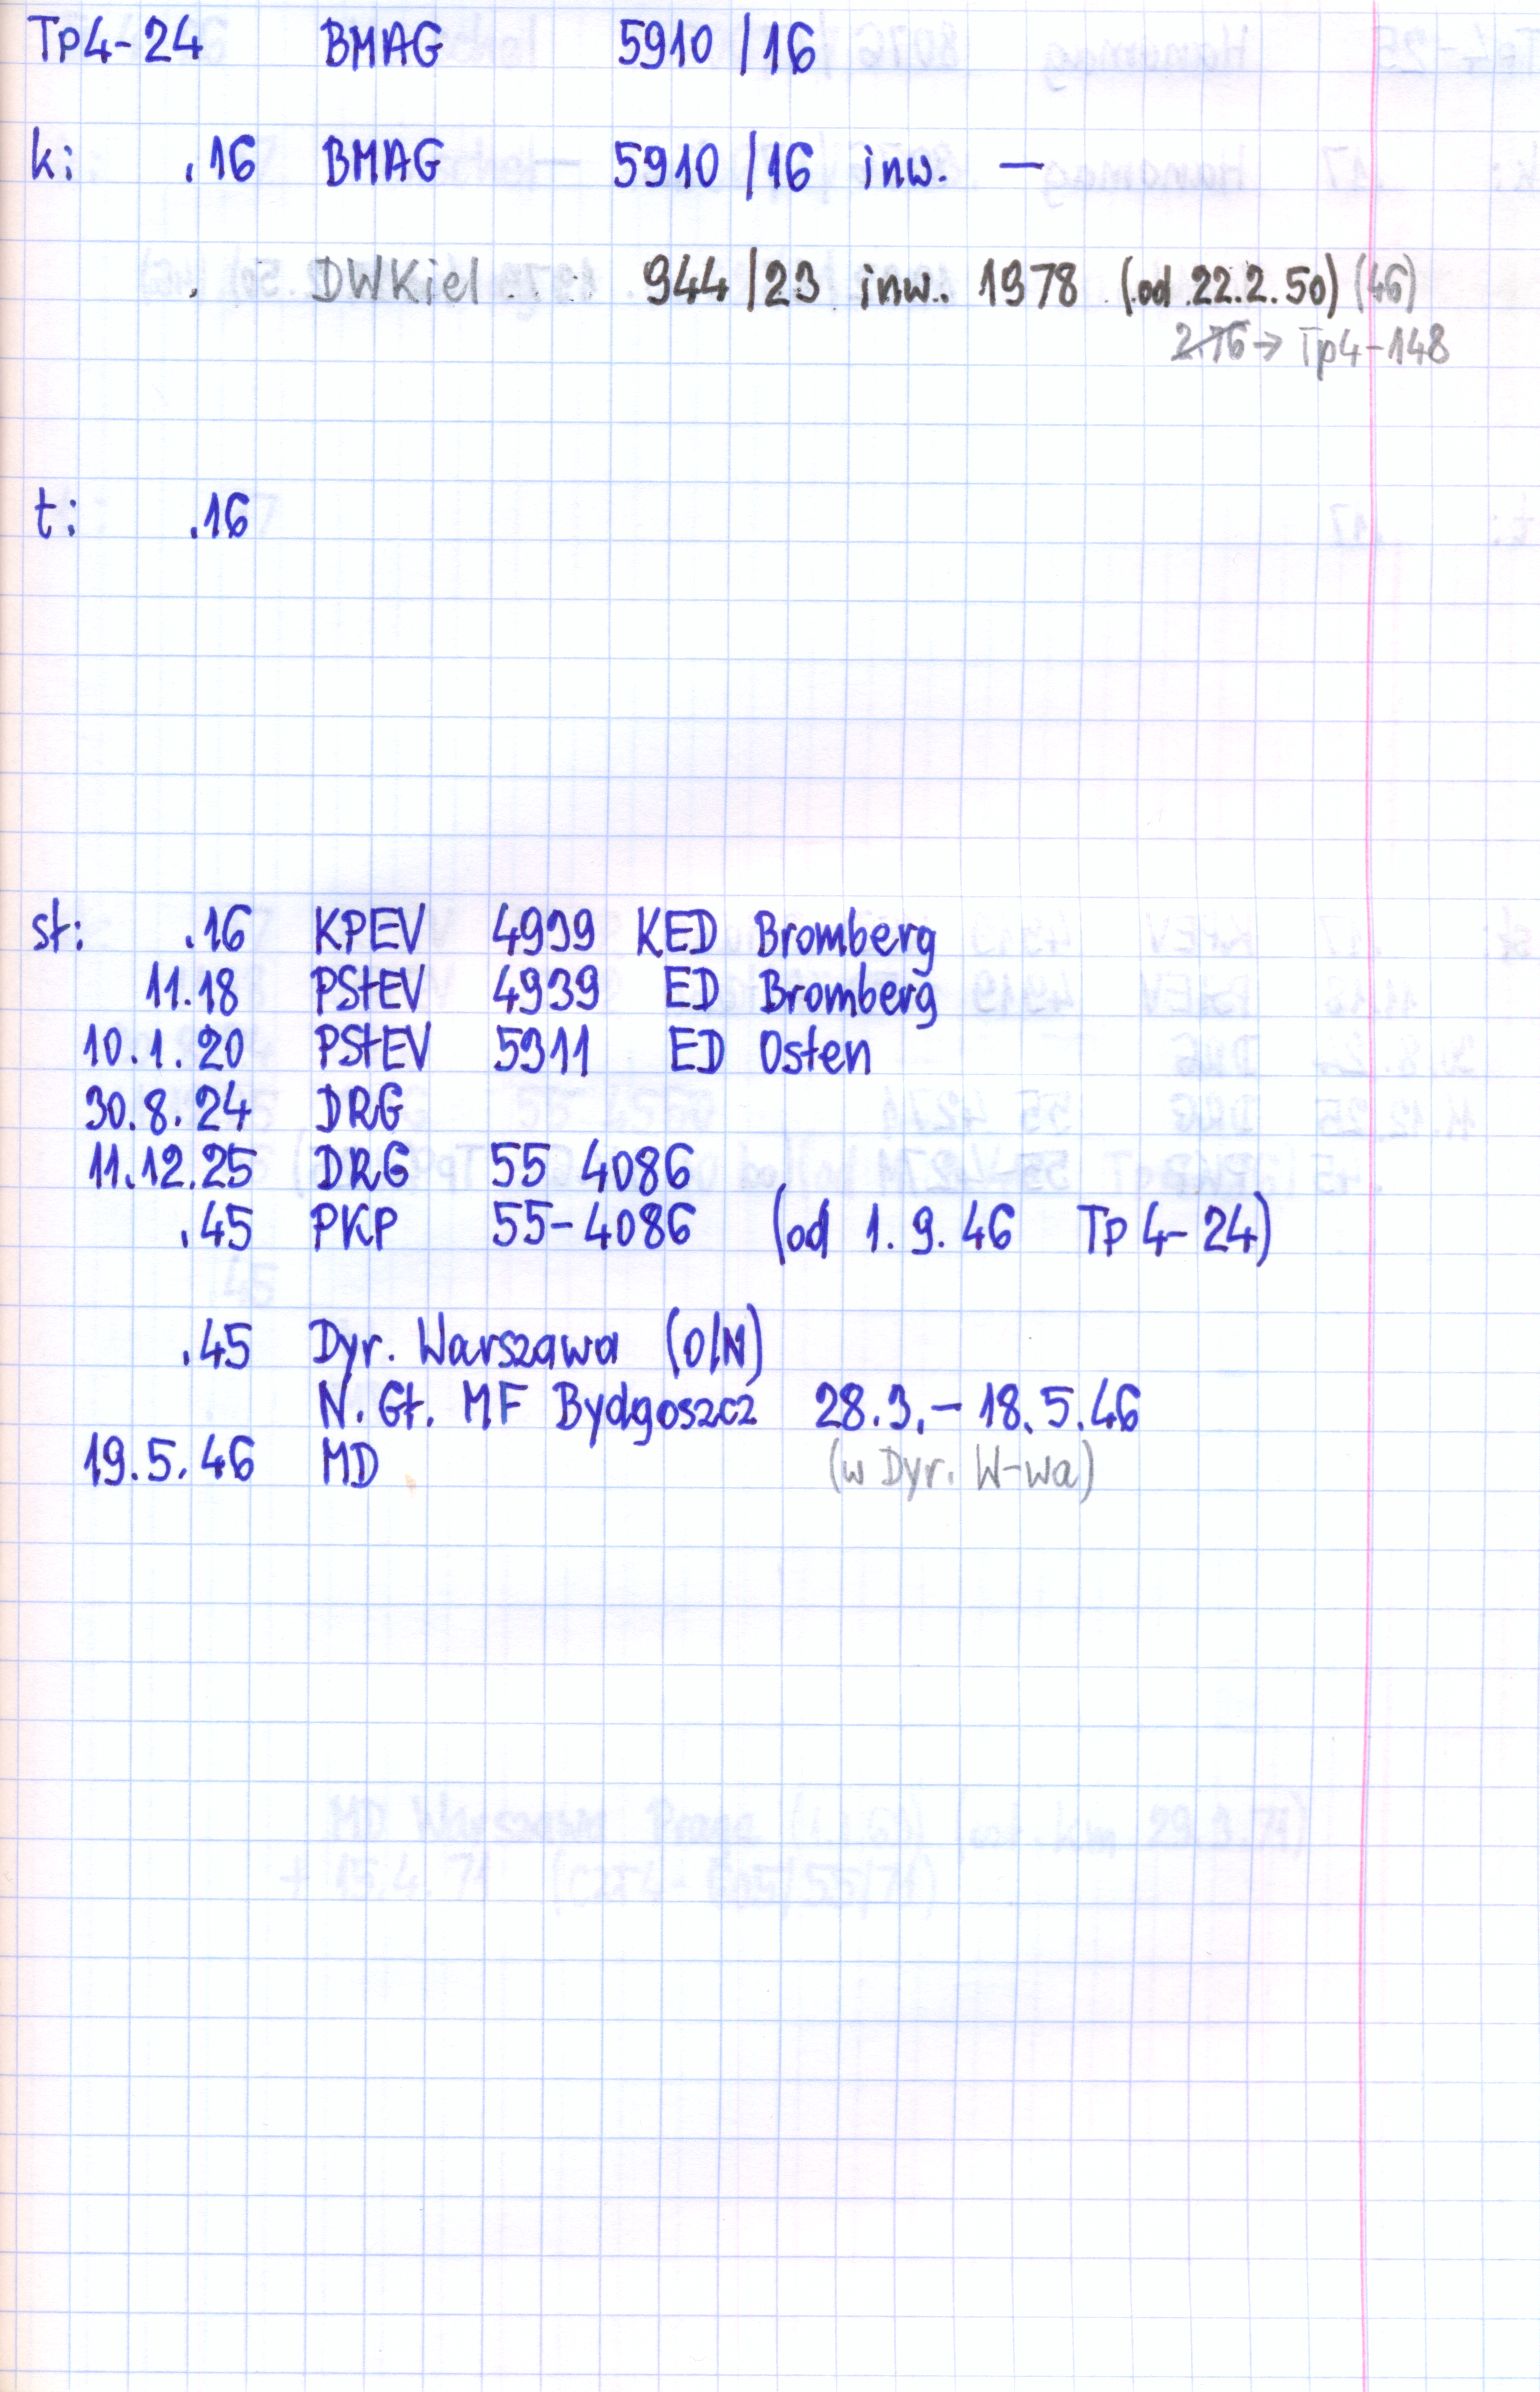 Tp4-24 BMAG 5910/16
k: .16 BMAG 5910/16 inw. —
. DWKiel 944/23 inw. 1978 (od 22.2.50) (46)
2.76 → Tp4-148
t: .16
st: .16 KPEV 4939 KED Bromberg
11.18 PStEV 4939 ED Bromberg
10.1.20 PStEV 5311 ED Osten
30.8.24 DRG
11.12.25 DRG 55 4086
.45 PKP 55-4086 (od 1.9.46 Tp4-24)
.45 Dyr. Warszawa (O/N)
N. Gł. MF Bydgoszcz 28.3.-18.5.46
19.5.46 MD (w Dyr. W-wa)